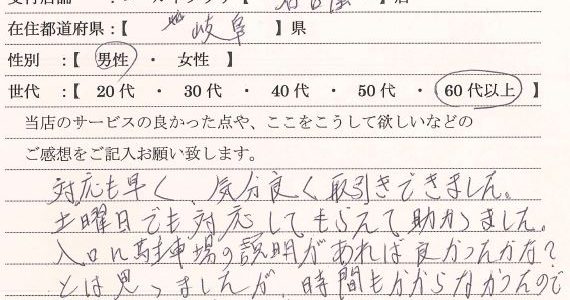 在住都道府県:【 岐阜 】県
性別 :【 男性 ・ 女性 】
世代 :【 20代 ・ 30代 ・ 40代 ・ 50代 ・ 60代以上 】
当店のサービスの良かった点や、ここをこうして欲しいなどの
ご感想をご記入お願い致します。
対応も早く、気分良く取引きできました。
土曜日でも対応してもらえて助かりました。
入口に駐車場の説明があれば良かったかな?
とは思いましたが 時間もかからなかったので